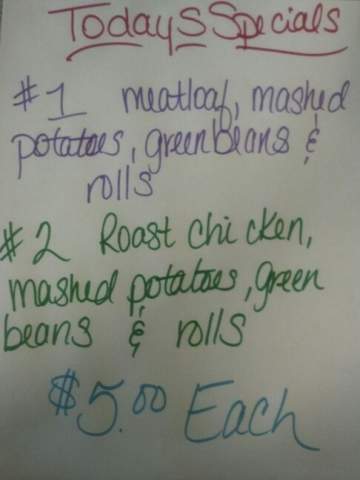 Todays Specials
#1 meatloaf, mashed
potatoes, green beans &
rolls
#2 Roast chicken,
mashed potatoes, green
beans & rolls
$5.00 Each